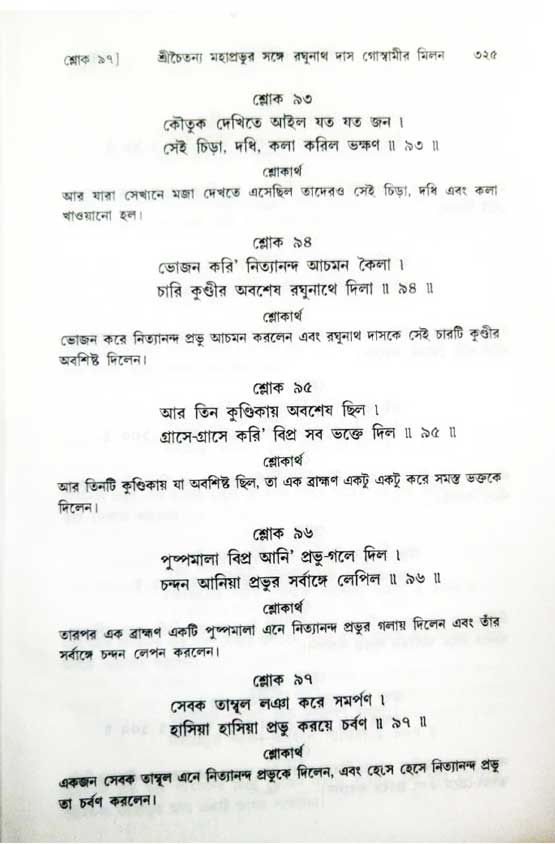 শ্লোক ৯৭] শ্রীচৈতন্য মহাপ্রভুর সঙ্গে রঘুনাথ দাস গোস্বামীর মিলন ৩২৫
শ্লোক ৯৩
কৌতুক দেখিতে আইল যত যত জন ।
সেই চিড়া, দধি, কলা করিল ভক্ষণ ॥ ৯৩ ॥
শ্লোকার্থ
আর যারা সেখানে মজা দেখতে এসেছিল তাদেরও সেই চিড়া, দধি এবং কলা
খাওয়ানো হল।
শ্লোক ৯৪
ভোজন করি' নিত্যানন্দ আচমন কৈলা ।
চারি কুণ্ডীর অবশেষ রঘুনাথে দিলা ॥ ৯৪ ॥
শ্লোকার্থ
ভোজন করে নিত্যানন্দ প্রভু আচমন করলেন এবং রঘুনাথ দাসকে সেই চারটি কুণ্ডীর
অবশিষ্ট দিলেন।
শ্লোক ৯৫
আর তিন কুণ্ডিকায় অবশেষ ছিল ।
গ্রাসে-গ্রাসে করি' বিপ্র সব ভক্তে দিল ॥ ৯৫ ॥
শ্লোকার্থ
আর তিনটি কুণ্ডিকায় যা অবশিষ্ট ছিল, তা এক ব্রাহ্মণ একটু একটু করে সমস্ত ভক্তকে
দিলেন।
শ্লোক ৯৬
পুষ্পমালা বিপ্র আনি' প্রভু-গলে দিল ।
চন্দন আনিয়া প্রভুর সর্বাঙ্গে লেপিল ॥ ৯৬ ॥
শ্লোকার্থ
তারপর এক ব্রাহ্মণ একটি পুষ্পমালা এনে নিত্যানন্দ প্রভুর গলায় দিলেন এবং তাঁর
সর্বাঙ্গে চন্দন লেপন করলেন।
শ্লোক ৯৭
সেবক তাম্বূল লঞা করে সমর্পণ ।
হাসিয়া হাসিয়া প্রভু করয়ে চর্বণ ॥ ৯৭ ॥
শ্লোকার্থ
একজন সেবক তাম্বূল এনে নিত্যানন্দ প্রভুকে দিলেন, এবং হেসে হেসে নিত্যানন্দ প্রভু
তা চর্বণ করলেন।